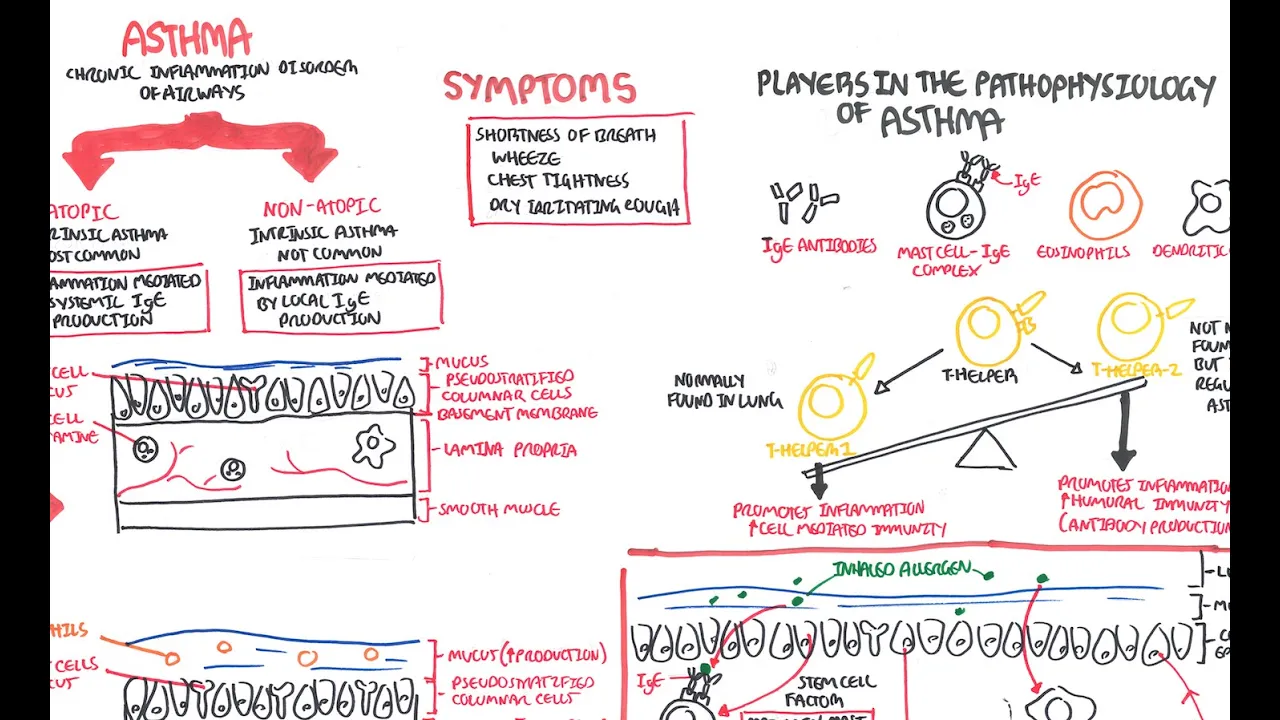 ASTHMA
CHRONIC INFLAMMATION DISORDER
OF AIRWAYS
ATOPIC
RINSIC ASTHMA
OST COMMON
AMMATION MEDIATED
SYSTEMIC IgE
PRODUCTION
NON-ATOPIC
INTRINSIC ASTHMA
NOT COMMON
INFLAMMATION MEDIATED
BY LOCAL IgE
PRODUCTION
SYMPTOMS
SHORTNESS OF BREATH
WHEEZE
CHEST TIGHTNESS
DRY IRRITATING COUGH
PLAYERS IN THE PATHOPHYSIOLOGY
OF ASTHMA
IgE
IgE ANTIBODIES
MAST CELL-IgE
COMPLEX
EOSINOPHILS
DENDRITIC
T-HELPER
T-HELPER-2
NORMALLY
FOUND IN LUNG
T-HELPER 1
NOT N
FOUN
BUT
REGU
AST
PROMOTES INFLAMMATION
↑CELL MEDIATED IMMUNITY
PROMOTES INFLAMMATION
↑HUMORAL IMMUNITY
(ANTIBODY PRODUCTION
CELL
CUS
CELL
AMINE
MUCUS
PSEUDOSTRATIFIED
COLUMNAR CELLS
BASEMENT MEMBRANE
LAMINA PROPRIA
SMOOTH MUCLE
PHILS
T CELLS
CUT
MUCUS (↑PRODUCTION)
PSEUDOSTRATIFIED
COLUMNAR CELLS
INHALED ALLERGEN
L
M
C
IgE
STEM CELL
FACTOR